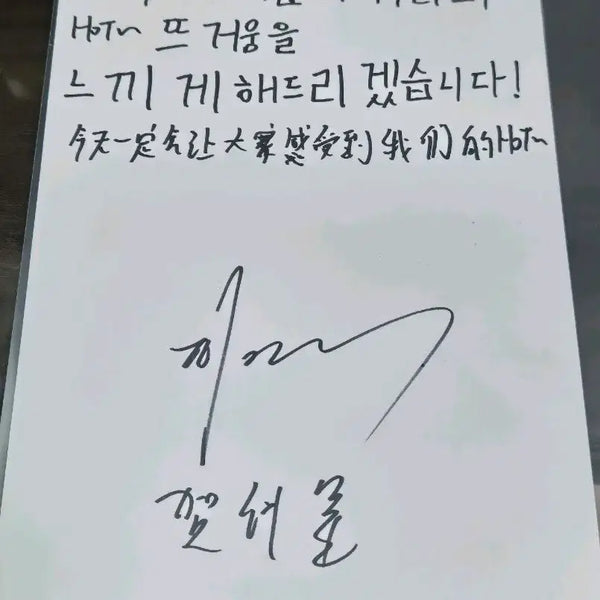 HoTn 뜨 거움을
느끼 게 해드리 겠습니다!
今天一定会让大家感受到我们的HoTn